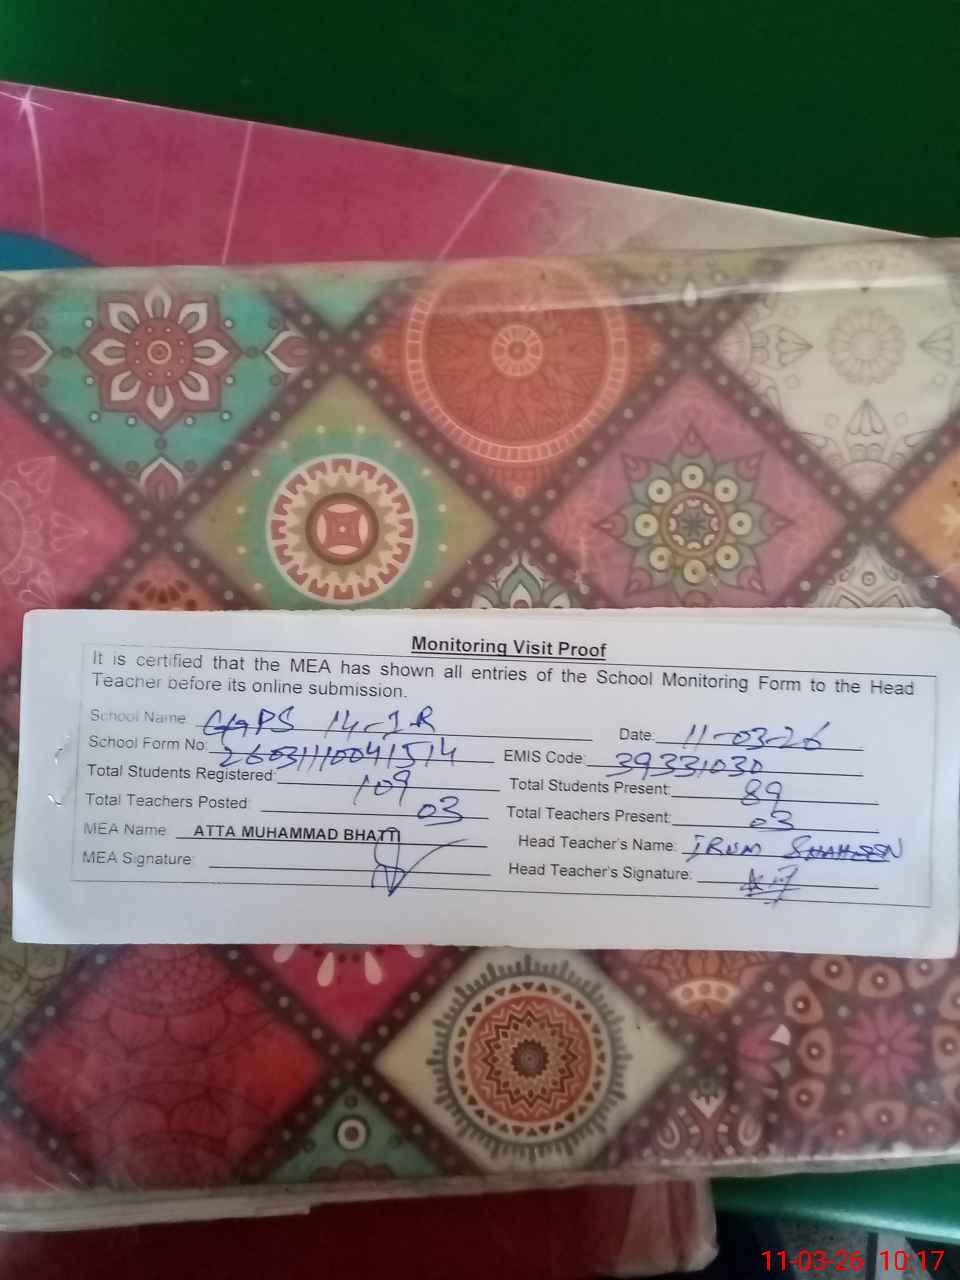 Monitoring Visit Proof
It is certified that the MEA has shown all entries of the School Monitoring Form to the Head
Teacher before its online submission.
School Name: GGPS 14-1-R Date: 11-03-26
School Form No: 26031110041514 EMIS Code: 39331030
Total Students Registered: 109 Total Students Present: 89
Total Teachers Posted: 03 Total Teachers Present: 03
MEA Name ATTA MUHAMMAD BHATTI Head Teacher's Name: IRUM SHAHEEN
MEA Signature: Head Teacher's Signature:
11-03-26 10:17